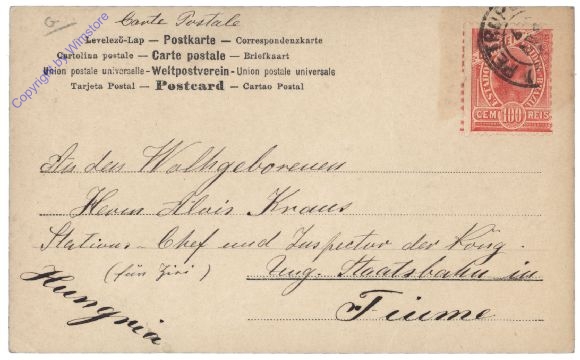 Carte Postale
Levelező-Lap — Postkarte — Correspondenzkarte
Cartolina postale — Carte postale — Briefkaart
Union postale universelle - Weltpostverein - Union postale universale
Tarjeta Postal — Postcard — Cartao Postal
Copyright by Wimstore
CEM 100 REIS
An den Wohlgeborenen
Herrn Alois Kraus
Stations-Chef und Inspector der König.
(für Ziri) Ung. Staatsbahn in
Fiume
Hungria